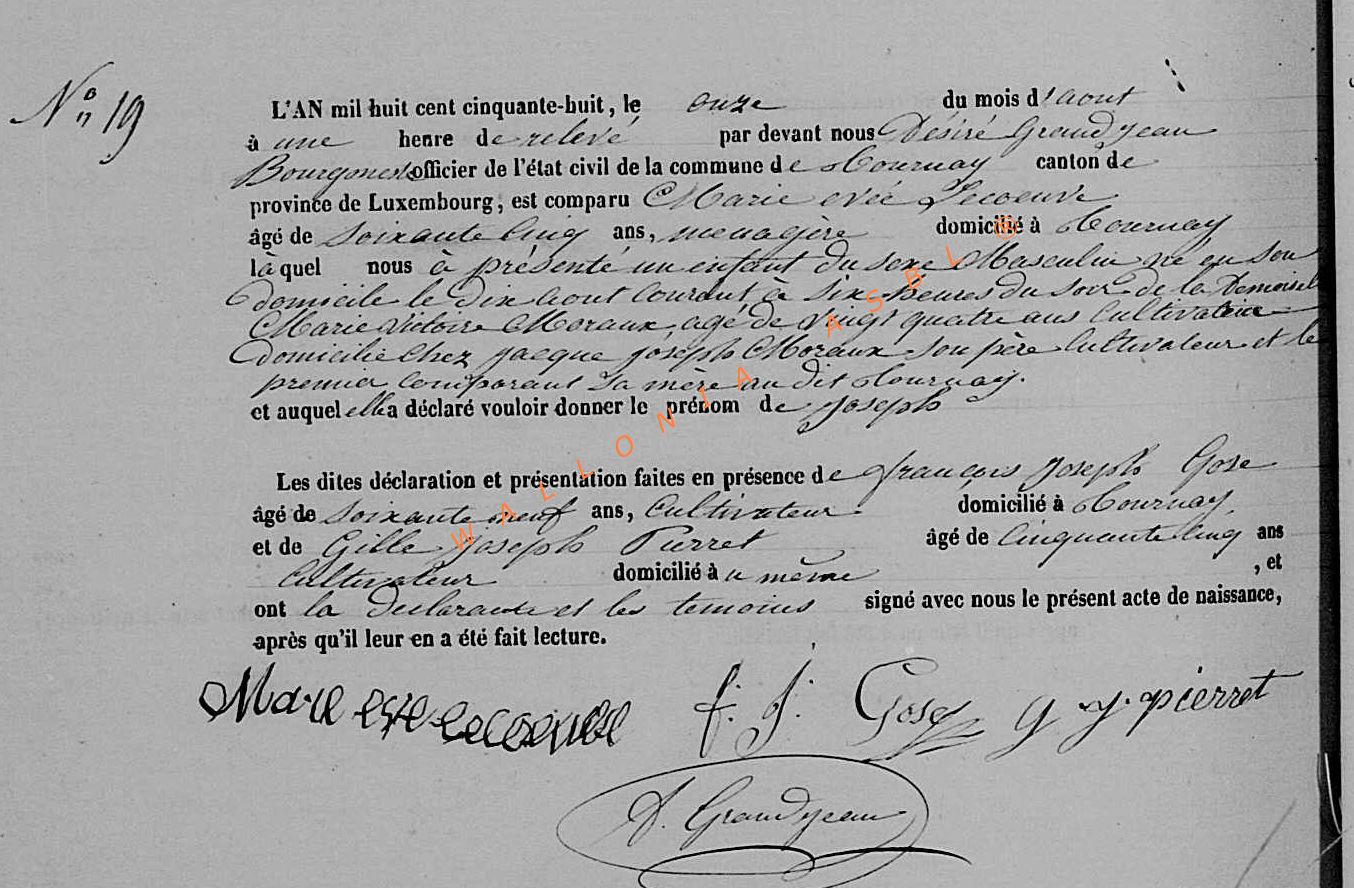 N° 19
L'AN mil huit cent cinquante-huit, le onze du mois d'aout
à une heure de relevé par devant nous Désiré Grandjean
Bourgmestre officier de l'état civil de la commune de Tournay canton de
province de Luxembourg, est comparu Marie evée Lecoeuve
âgé de Soixante Cinq ans, menagère domicilié à Tournay
làquel nous à présenté un enfant du sexe Masculin né en son
domicile le dix aout Courant à six heures du soir de la Demoisel
Marie Victoire Moraux agé de vingt quatre ans Cultivatrice
domicilié Chez Jacque joseph Moraux son père Cultivateur et le
premier Comparant Sa mère au dit Tournay.
et auquel elle a déclaré vouloir donner le prénom de Joseph
Les dites déclaration et présentation faites en présence de françois Joseph Gose
âgé de Soixante neuf ans, Cultivateur domicilié à Tournay
et de Gille Joseph Pierret âgé de Cinquante Cinq ans
Cultivateur domicilié à u même , et
ont la Declarante et les temoins signé avec nous le présent acte de naissance,
après qu'il leur en a été fait lecture.
f. J. Gose g j. pierret
D. Grandjean
WALLONIA ASBL ©